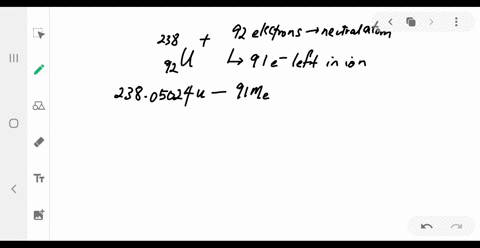 ²³⁸₉₂U⁺ 92 electrons → neutral atom
↳ 91e⁻ left in ion
238.05024u — 91mₑ
Tт